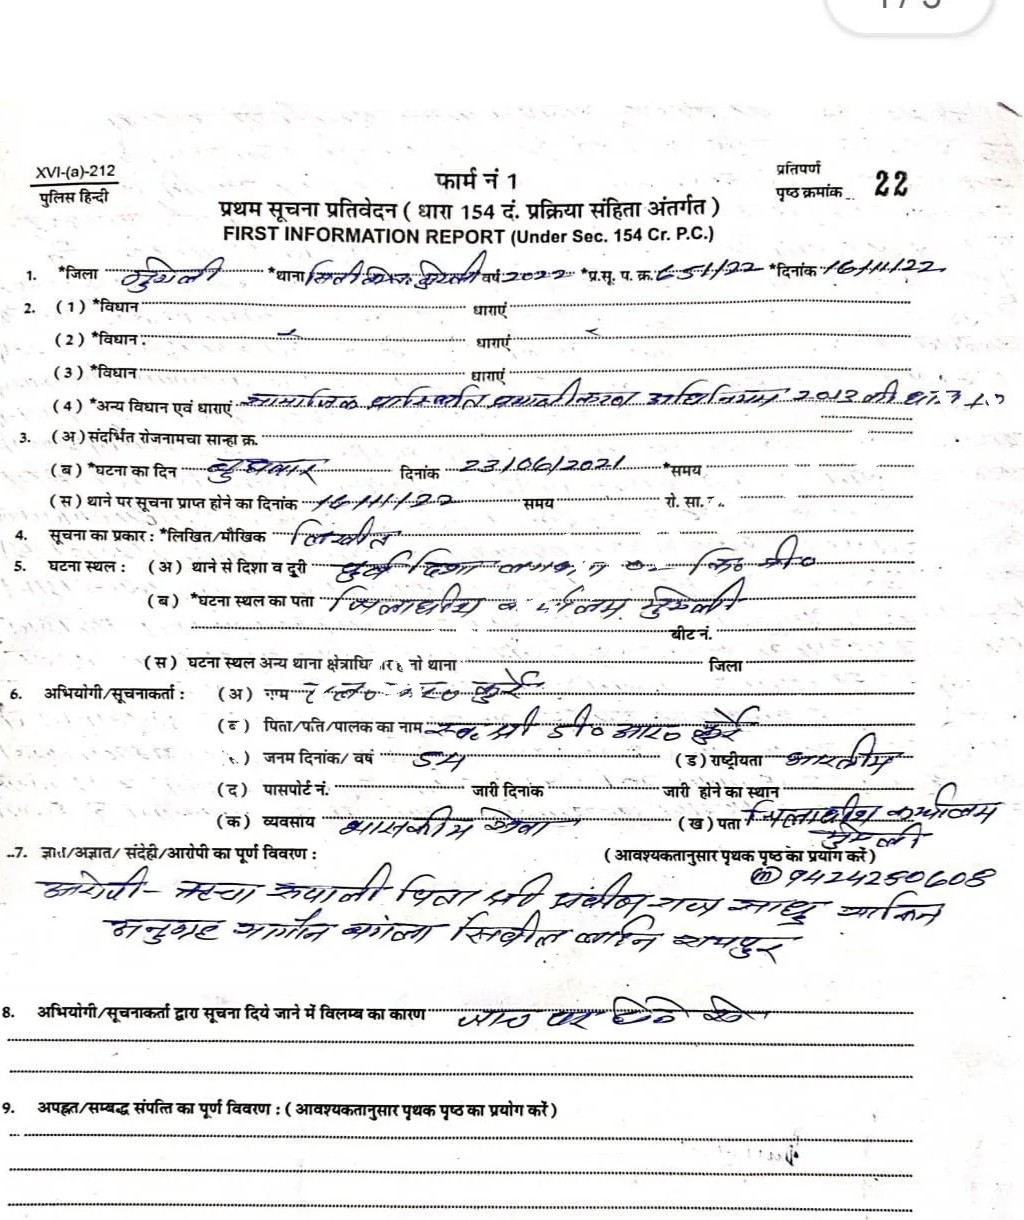 XVI-(a)-212
पुलिस हिन्दी
फार्म नं 1
प्रतिपर्ण
पृष्ठ क्रमांक 22
प्रथम सूचना प्रतिवेदन ( धारा 154 दं. प्रक्रिया संहिता अंतर्गत )
FIRST INFORMATION REPORT (Under Sec. 154 Cr. P.C.)
1. *जिला मुंगेली *थाना सिटी मुंगेली वर्ष 2022 *प्र.सू. प. क्र. 651/22 *दिनांक 16/11/22
2. (1) *विधान धाराएं
(2) *विधान धाराएं
(3) *विधान धाराएं
(4) *अन्य विधान एवं धाराएं सामाजिक प्रास्थिति प्रमाणीकरण अधिनियम 2013 की
3. (अ) संदर्भित रोजनामचा सान्हा क्र.
(ब) *घटना का दिन बुधवार दिनांक 23/06/2021 *समय
(स) थाने पर सूचना प्राप्त होने का दिनांक 16/11/22 समय रो. सा.
4. सूचना का प्रकार : *लिखित/मौखिक लिखीत
5. घटना स्थल : (अ) थाने से दिशा व दूरी पुर्व दिशा
(ब) *घटना स्थल का पता जिलाधीश मुंगेली
बीट नं.
(स) घटना स्थल अन्य थाना थाना जिला
6. अभियोगी/सूचनाकर्ता : (अ) कुर्रे
पिता/पति/पालक का नाम स्व. श्री डी० आर० कुर्रे
जनम दिनांक/ वर्ष (ड) राष्ट्रीयता भारतीय
(द) पासपोर्ट नं. जारी दिनांक जारी होने का स्थान
(क) व्यवसाय शासकीय सेवा (ख) पता जिलाधीश कार्यालय
मुंगेली
7. ज्ञात/अज्ञात/ संदेही/आरोपी का पूर्ण विवरण : (आवश्यकतानुसार पृथक पृष्ठ का प्रयोग करें)
9424250608
आरोपी - ऋचा रूपाली पिता श्री प्रवीण राज साधु साकिन
अनुग्रह गार्डन बंगला सिवील लाईन रायपुर
8. अभियोगी/सूचनाकर्ता द्वारा सूचना दिये जाने में विलम्ब का कारण जांच पर
9. अपहृत/सम्बद्ध संपत्ति का पूर्ण विवरण : (आवश्यकतानुसार पृथक पृष्ठ का प्रयोग करें)